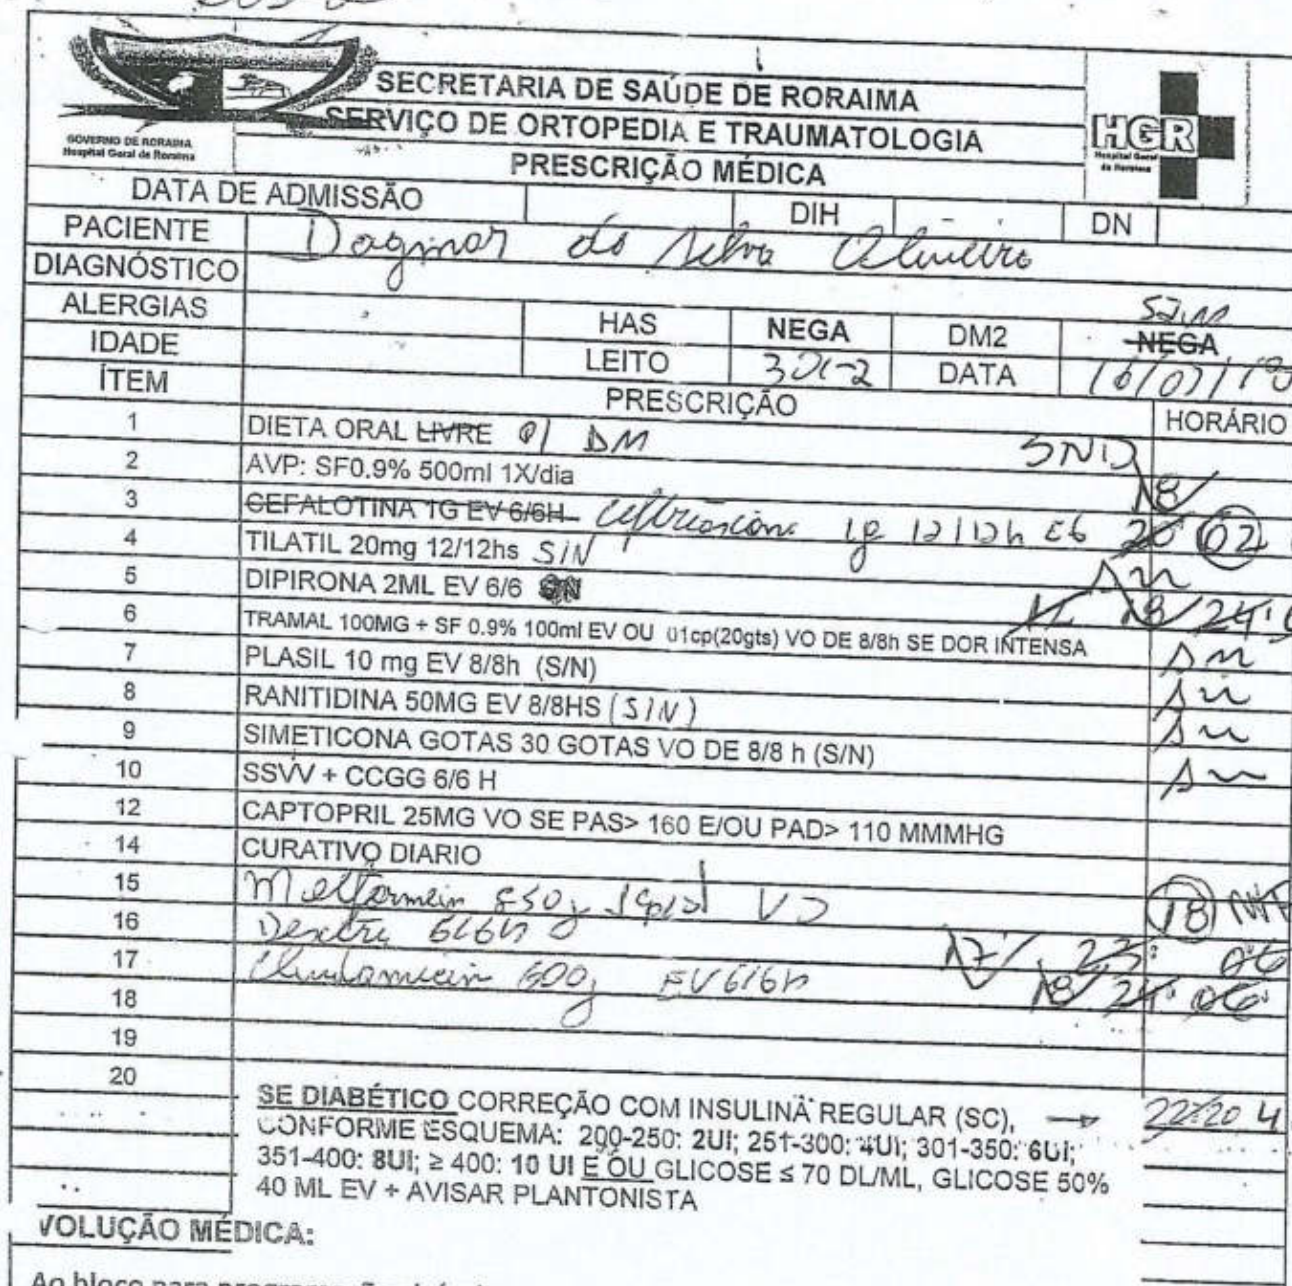 SECRETARIA DE SAÚDE DE RORAIMA
SERVIÇO DE ORTOPEDIA E TRAUMATOLOGIA
PRESCRIÇÃO MÉDICA
GOVERNO DE RORAIMA
Hospital Geral de Roraima
HGR
Hospital Geral de Roraima
DATA DE ADMISSÃO DIH DN
PACIENTE Dagmar da Silva
DIAGNÓSTICO
ALERGIAS HAS NEGA DM2 NEGA
IDADE LEITO 301-2 DATA 16/07/
ÍTEM PRESCRIÇÃO HORÁRIO
1 DIETA ORAL LIVRE P/ DM SND
2 AVP: SF0.9% 500ml 1X/dia 18
3 CEFALOTINA 1G EV 6/6H Ceftriaxona 1g 12/12h 02
4 TILATIL 20mg 12/12hs S/N
5 DIPIRONA 2ML EV 6/6 18/24
6 TRAMAL 100MG + SF 0.9% 100ml EV OU 01cp(20gts) VO DE 8/8h SE DOR INTENSA
7 PLASIL 10 mg EV 8/8h (S/N)
8 RANITIDINA 50MG EV 8/8HS (S/N)
9 SIMETICONA GOTAS 30 GOTAS VO DE 8/8 h (S/N)
10 SSVV + CCGG 6/6 H
12 CAPTOPRIL 25MG VO SE PAS> 160 E/OU PAD> 110 MMMHG
14 CURATIVO DIARIO
15 850 VO 18
16 Dextro 6/6h 17 23 06
17 600 EV 6/6h 18 24 06
18
19
20
SE DIABÉTICO CORREÇÃO COM INSULINA REGULAR (SC), → 22:20 4
CONFORME ESQUEMA: 200-250: 2UI; 251-300: 4UI; 301-350: 6UI;
351-400: 8UI; ≥ 400: 10 UI E OU GLICOSE ≤ 70 DL/ML, GLICOSE 50%
40 ML EV + AVISAR PLANTONISTA
VOLUÇÃO MÉDICA:
Ao bloco para